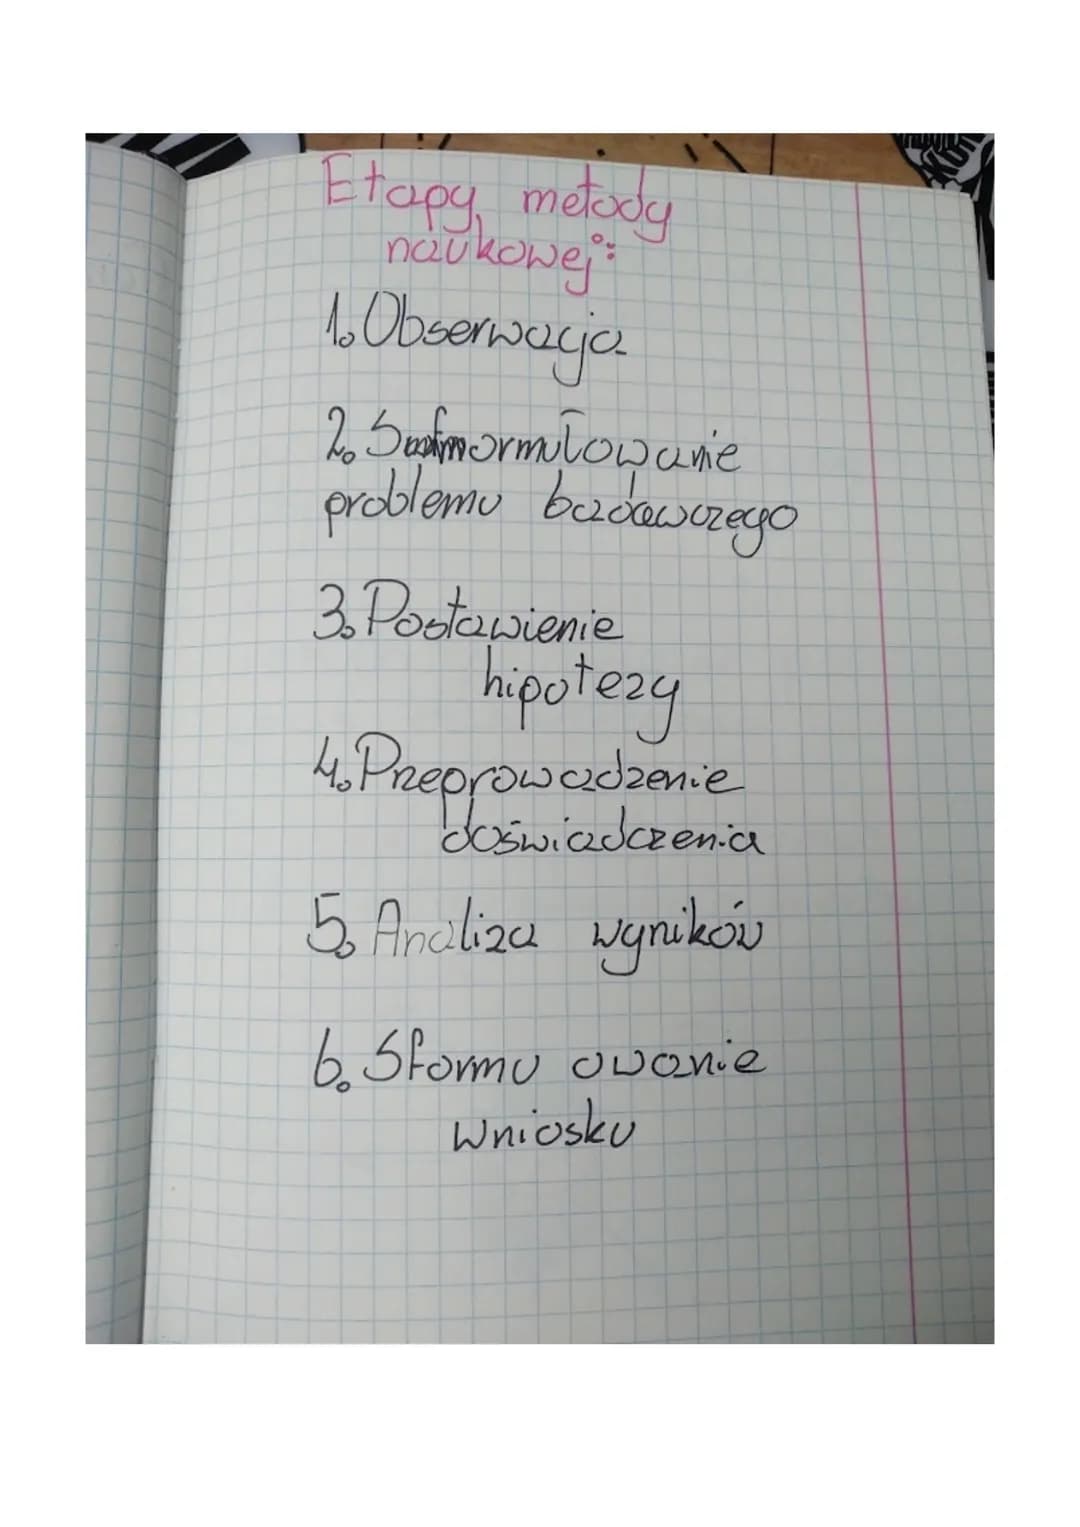 Etapy metody
naukowej:
1. Obserwacja
2. Sformułowanie
problemu badawczego
3. Postawienie
hipotezy
4. Przeprowadzenie
doświadczenia
5. Analiza wyników
6. Sformu owanie
wniosku